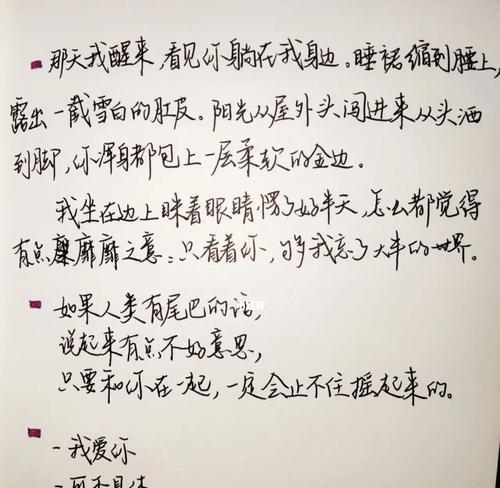 那天我醒来,看见你躺在我身边。睡裙缩到腰上,
露出一截雪白的肚皮。阳光从屋外头闯进来从头洒
到脚,你浑身都包上一层柔软的金边。
我坐在边上眯着眼睛愣了好半天,怎么都觉得
有点靡靡之意:只看着你,够我忘了大半的世界。
如果人类有尾巴的话,
说起来有点不好意思,
只要和你在一起,一定会止不住摇起来的。
-我爱你